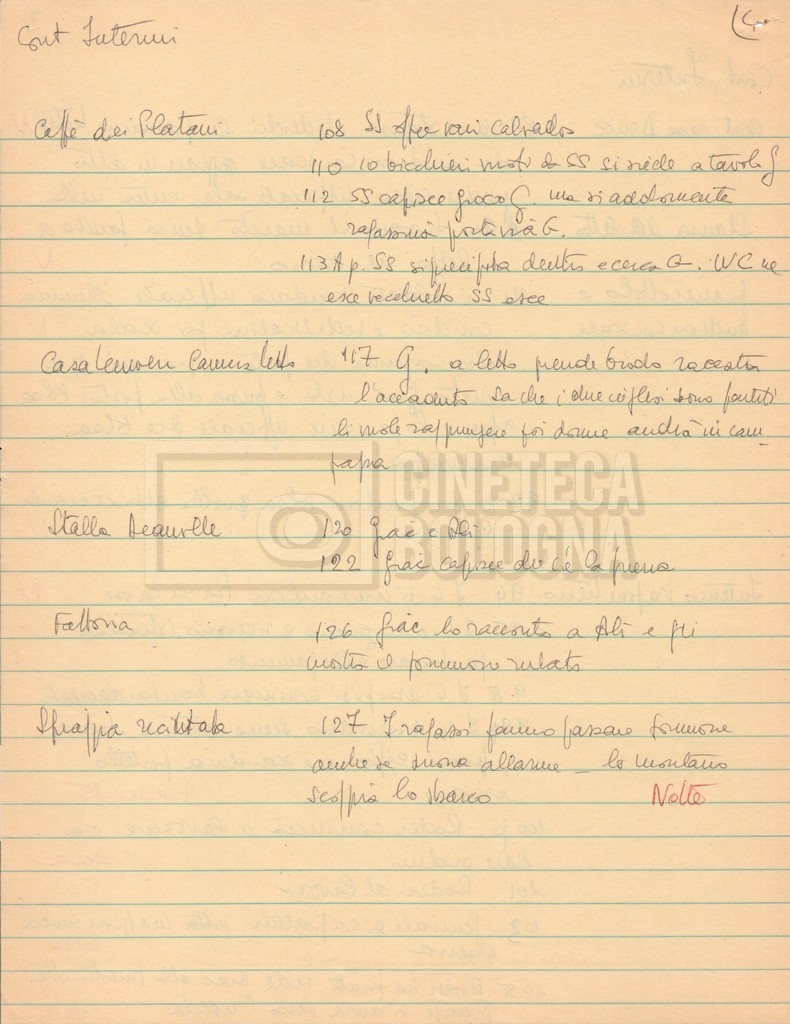 Cont Interni
Caffè dei Platani 108 SS offre vari calvados
110 10 bicchieri vuoti da SS si siede a tavola G
112 SS capisce gioco G. ma si addormenta
ragazzina porta via G.
113 A p. SS si precipita dentro e cerca G. WC ne
esce vecchietto SS esce
Camera letto 117 G. a letto prende brodo racconta
l'accaduto sa che i due sono partiti
li vuole raggiungere poi dorme andrà in cam-
pagna
CINETECA
BOLOGNA
Stalla Deauville 120 Giac e Alì
122 Giac capisce che c'è la
Fattoria 126 Giac lo racconta a Alì e gli
mostra il rubato
Spiaggia recintata 127 I ragazzi fanno passare
anche se suona allarme – lo montano
scoppia lo sbarco Notte